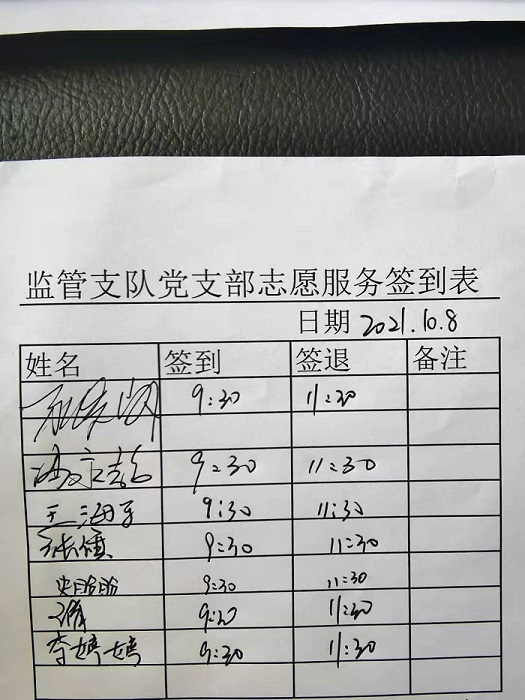 监管支队党支部志愿服务签到表
日期 2021.10.8
姓名 签到 签退 备注
9:30 11:30
9:30 11:30
王海 9:30 11:30
9:30 11:30
史盼盼 9:30 11:30
9:30 11:30
李婷婷 9:30 11:30